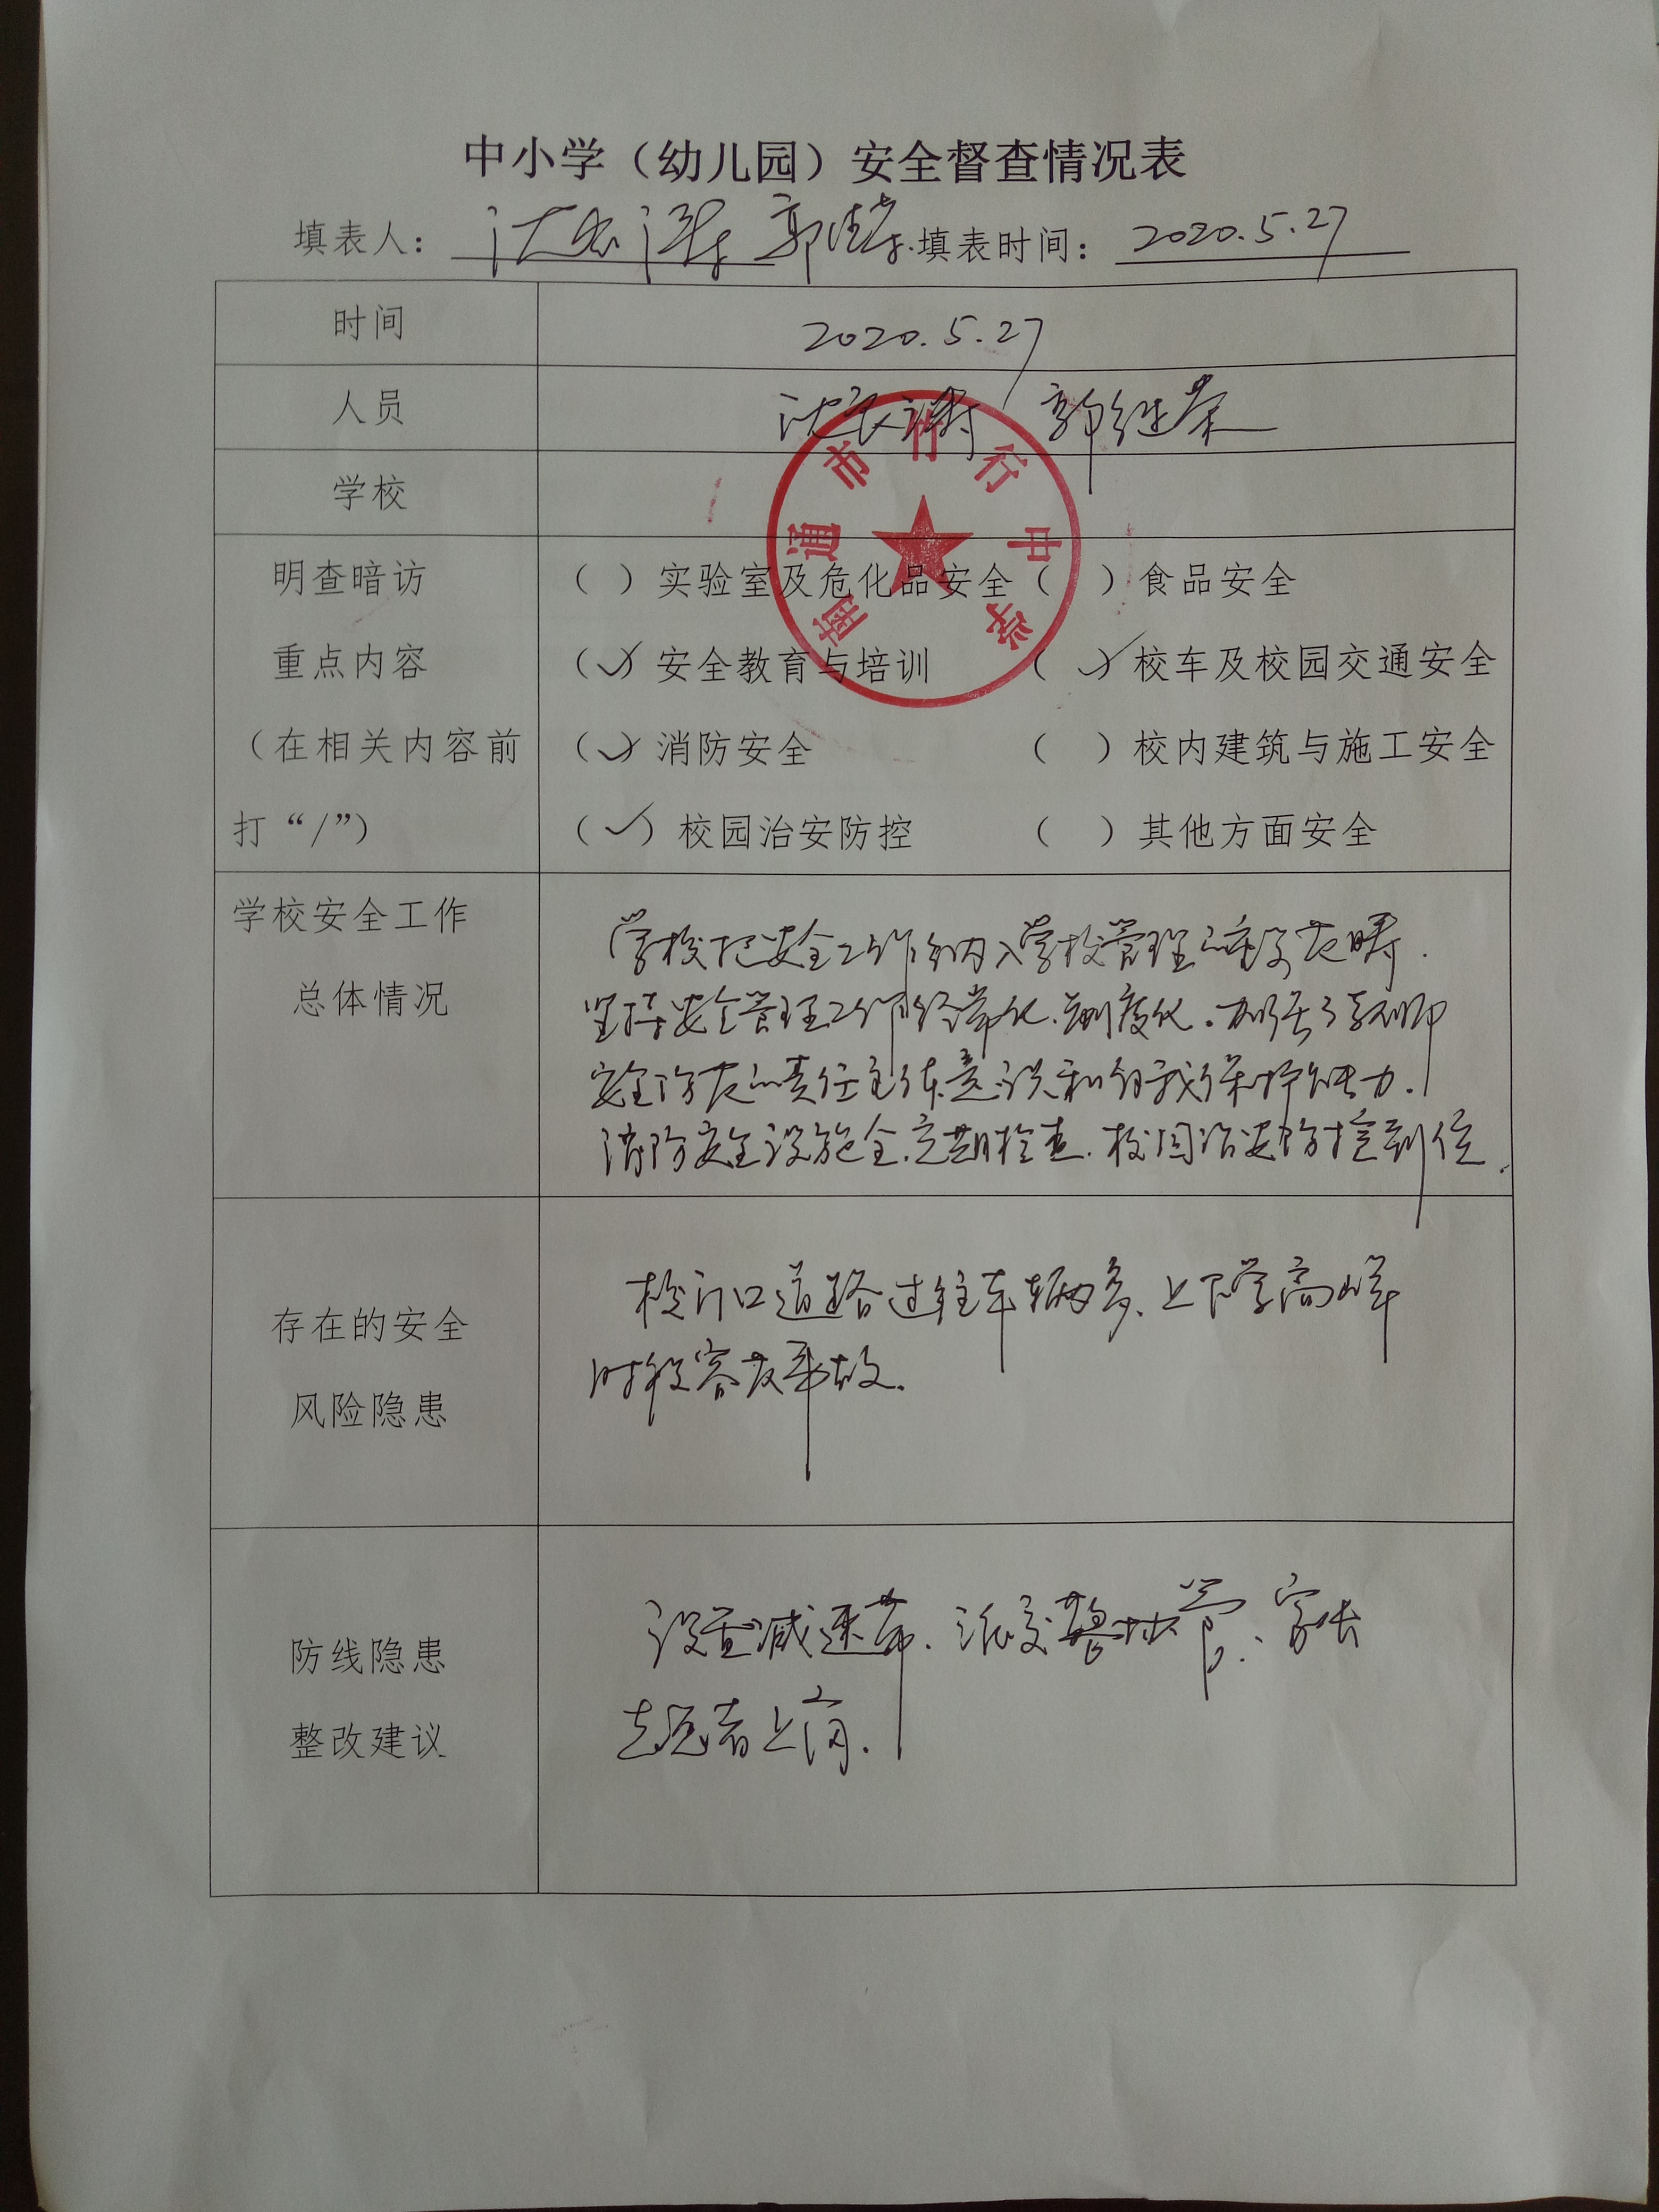 中小学（幼儿园）安全督查情况表
填表人： 填表时间：2020.5.27
时间 2020.5.27
人员 郭继荣
学校
南通市竹行中学
明查暗访
重点内容
（在相关内容前
打“/”）
（ ）实验室及危化品安全（ ）食品安全
（✓）安全教育与培训 （✓）校车及校园交通安全
（✓）消防安全 （ ）校内建筑与施工安全
（✓）校园治安防控 （ ）其他方面安全
学校安全工作
总体情况
学校把安全工作纳入学校管理的重要范畴.
坚持安全管理工作经常化、制度化。加强了教师
安全防范的责任主体意识和自我保护能力.
消防安全设施全、定期检查.校园治安防控到位.
存在的安全
风险隐患
校门口道路过往车辆多、上下学高峰
时段容发事故.
防线隐患
整改建议
设置减速带、派交警协管、家长
志愿者上岗.